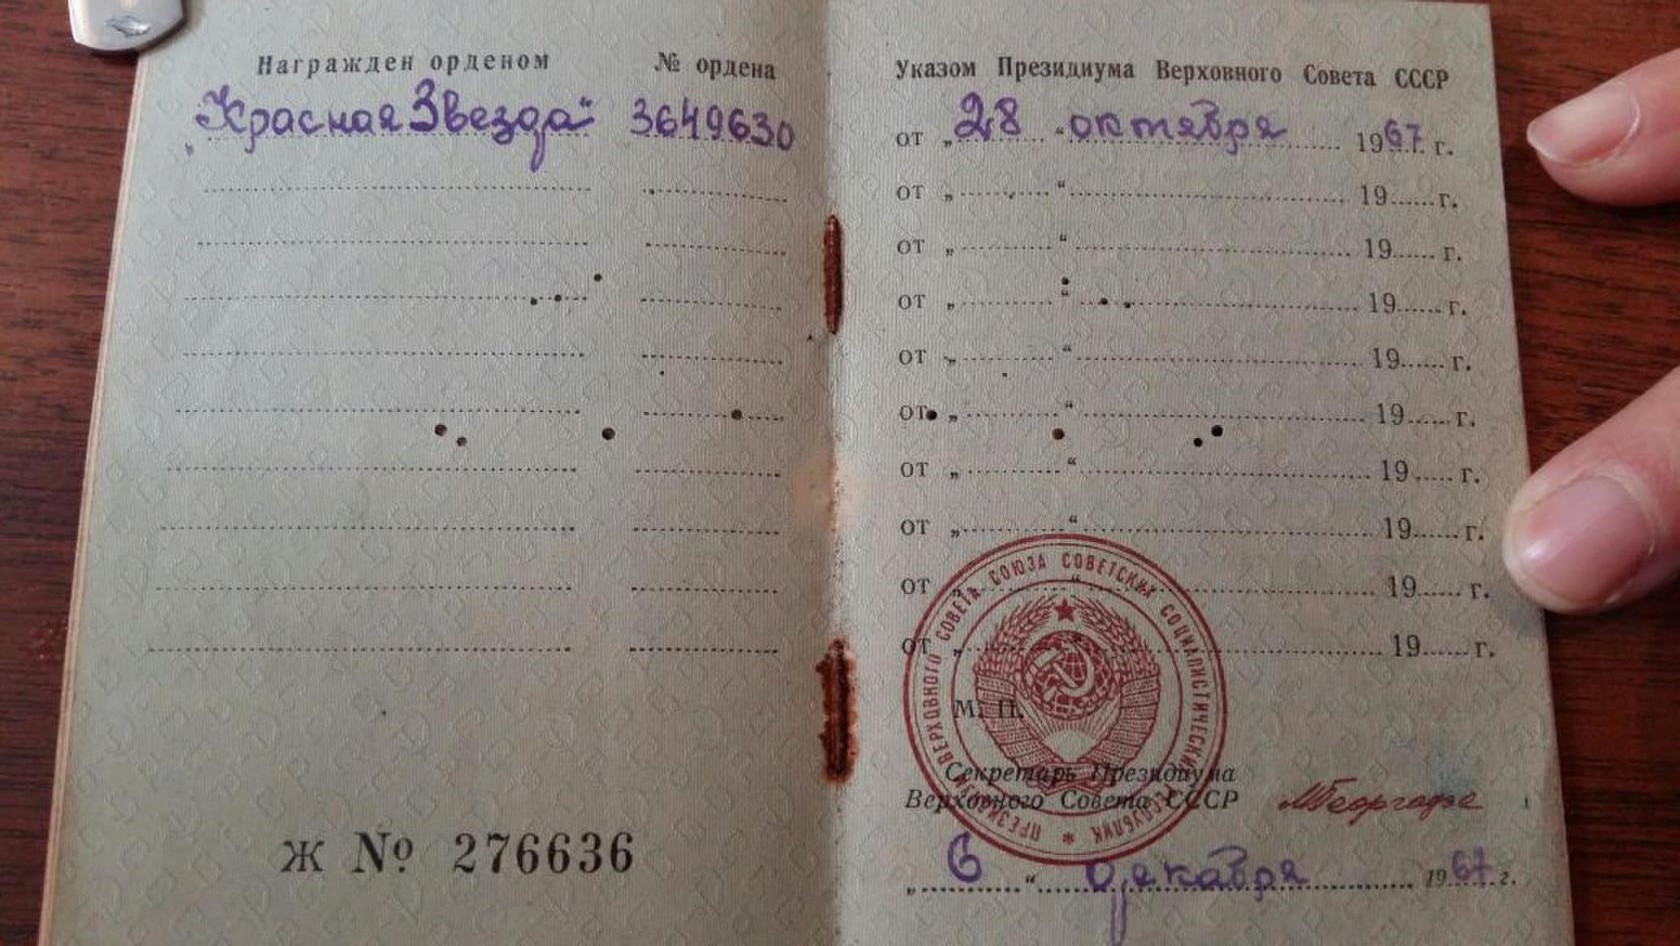 Награжден орденом № ордена
„Красная Звезда“ 3649630
Ж № 276636
Указом Президиума Верховного Совета СССР
от „28“ октября 1967 г.
от „ “ 19 г.
от „ “ 19 г.
от „ “ 19 г.
от „ “ 19 г.
от „ “ 19 г.
от „ “ 19 г.
от „ “ 19 г.
от „ “ 19 г.
от „ “ 19 г.
ПРЕЗИДИУМ ВЕРХОВНОГО СОВЕТА СОЮЗА СОВЕТСКИХ СОЦИАЛИСТИЧЕСКИХ РЕСПУБЛИК
М. П.
Секретарь Президиума
Верховного Совета СССР МГеоргадзе
„6“ декабря 1967 г.